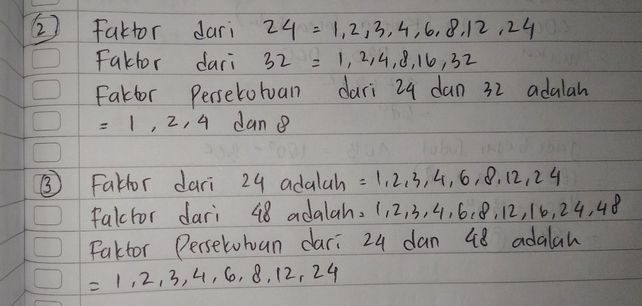 2 Faktor dari 24 = 1,2,3,4,6,8,12,24
Faktor dari 32 = 1,2,4,8,16,32
Faktor Persekutuan dari 24 dan 32 adalah
= 1, 2, 4 dan 8
3 Faktor dari 24 adalah = 1,2,3,4,6,8,12,24
Faktor dari 48 adalah = 1,2,3,4,6,8,12,16,24,48
Faktor Persekutuan dari 24 dan 48 adalah
= 1,2,3,4,6,8,12,24